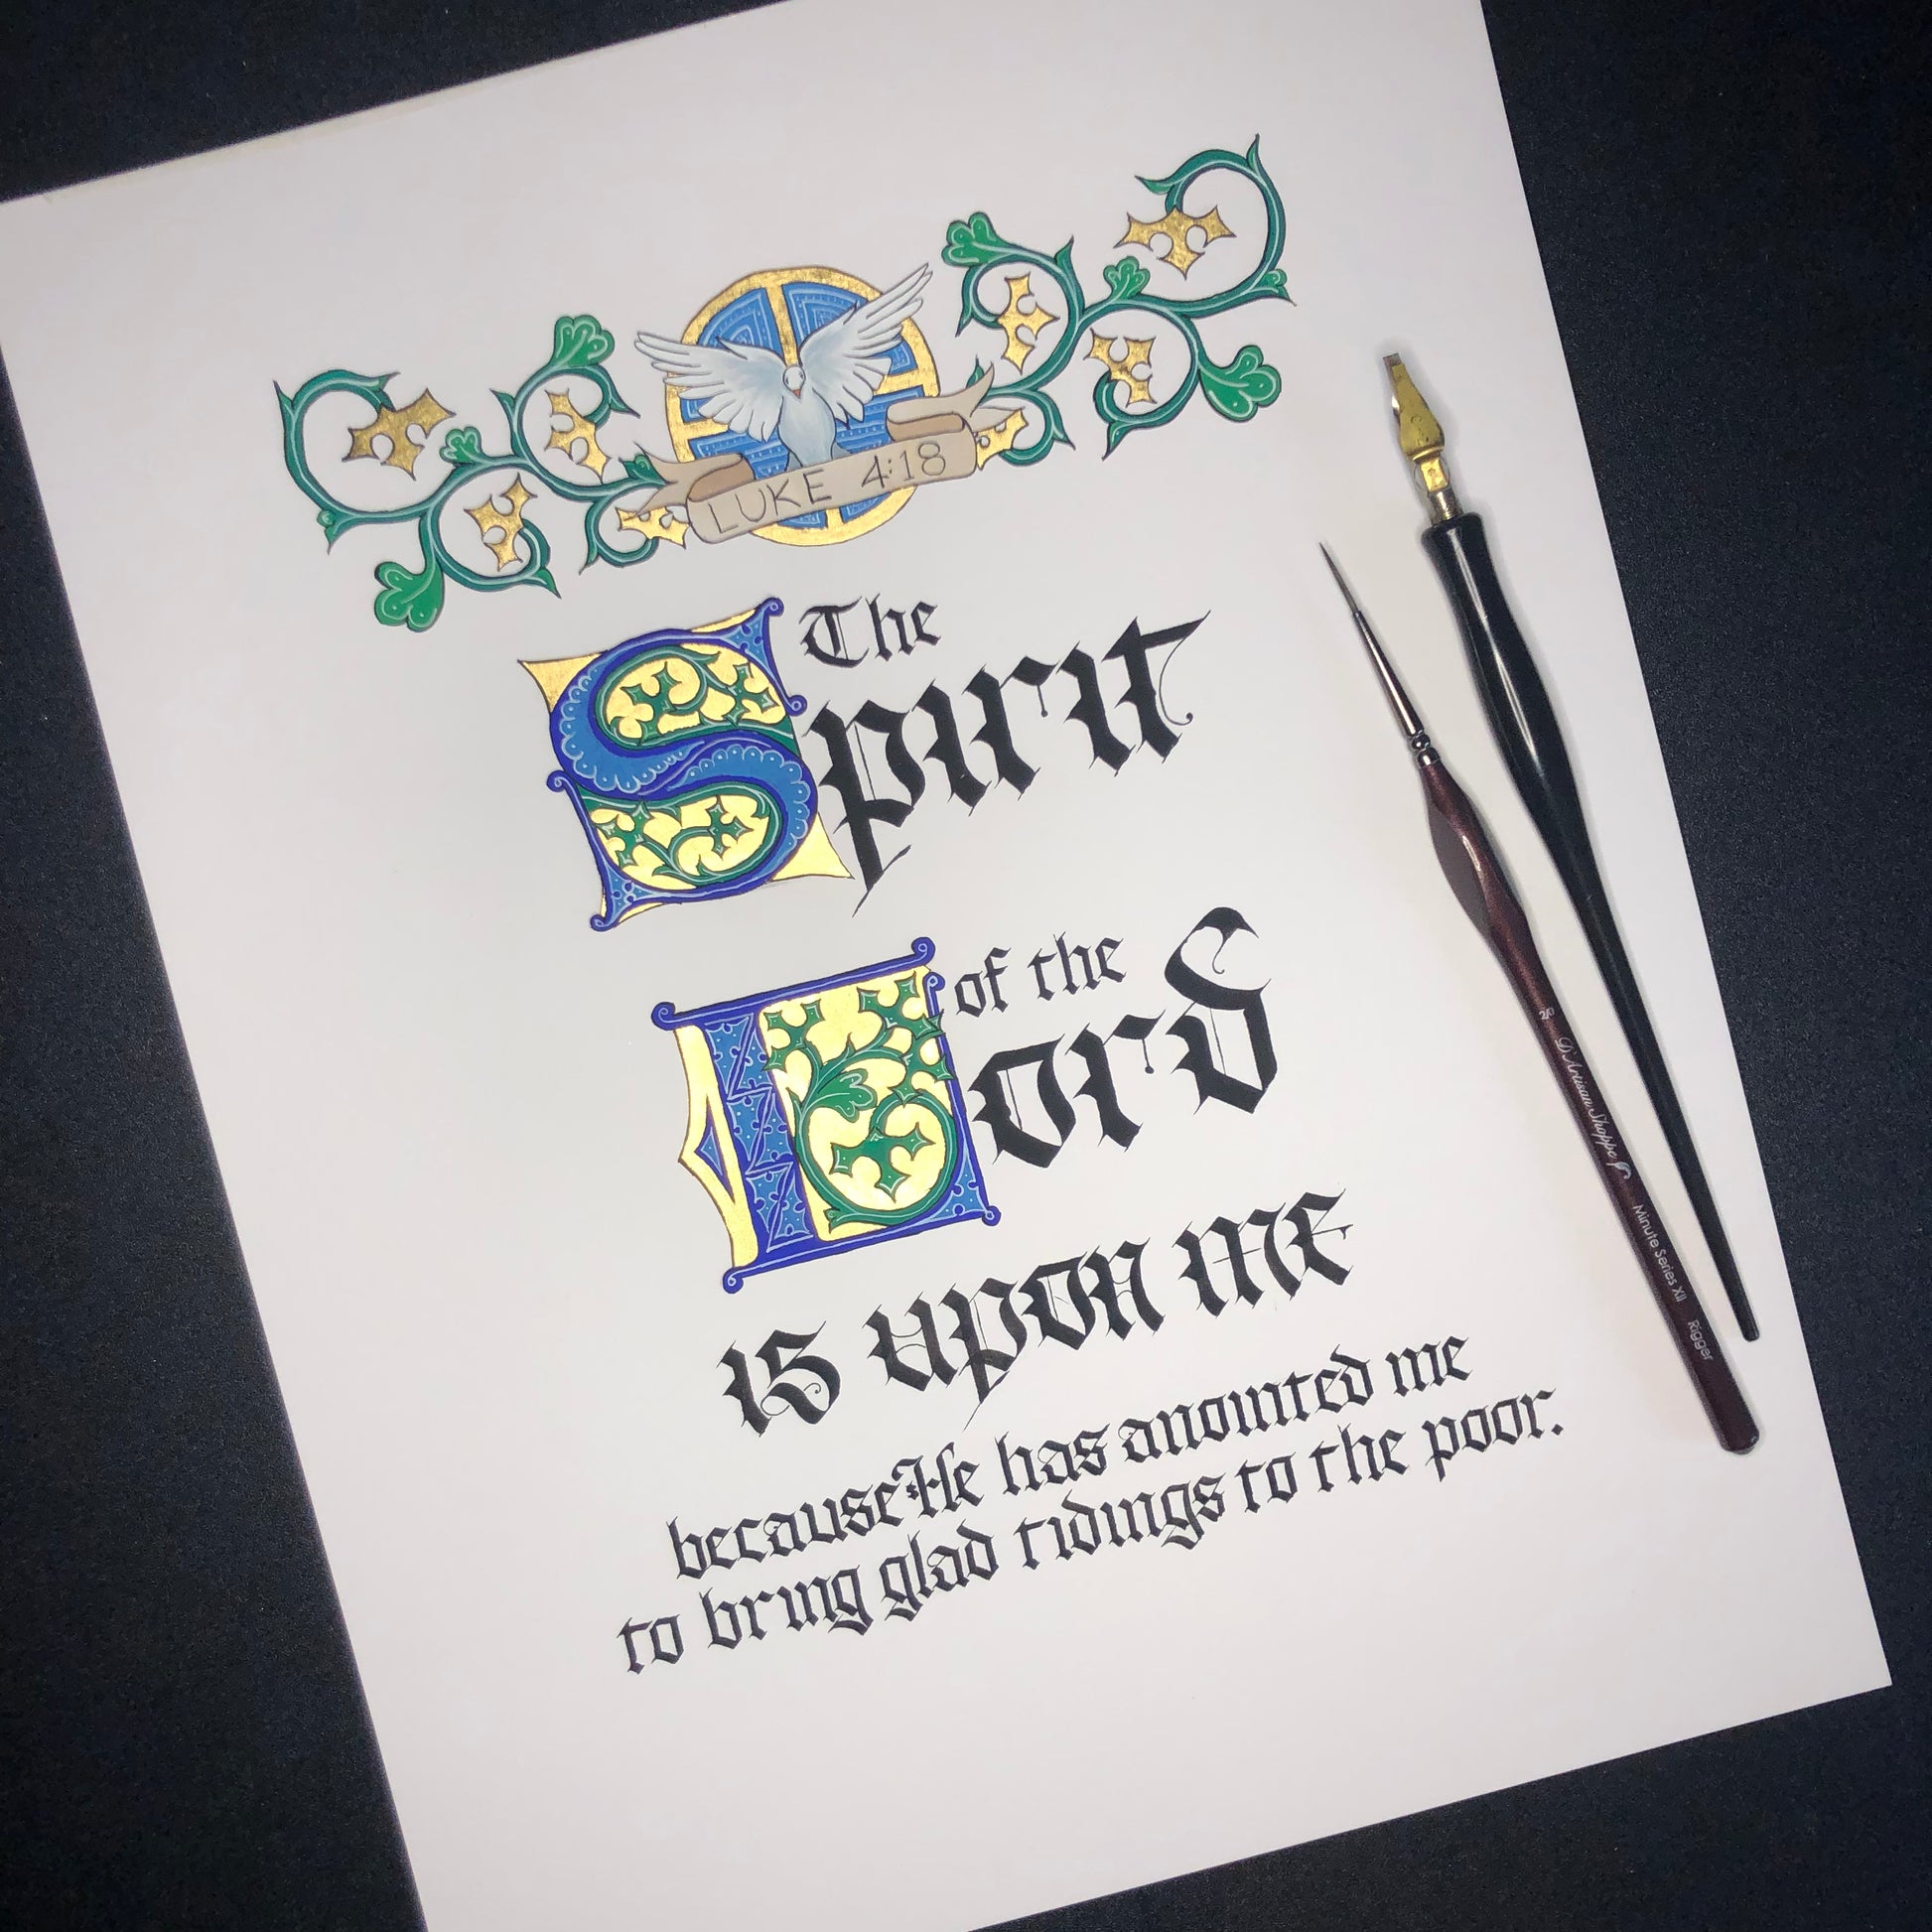 LUKE 4:18
The
Spirit
of the
Lord
is upon me
because He has anointed me
to bring glad tidings to the poor.
2/0 D'Artisan Shoppe Minute Series XII Rigger